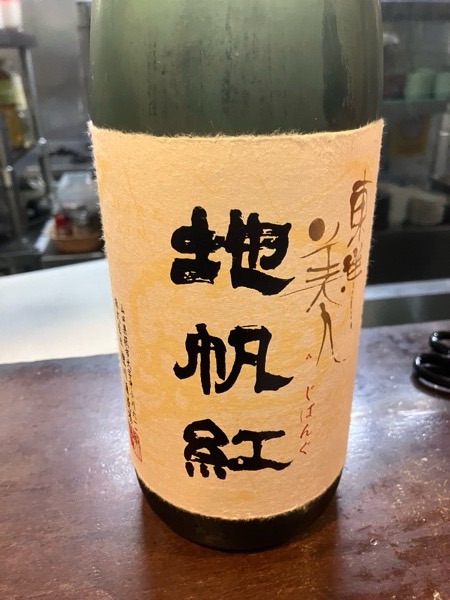 東洋美人
の
じぱんぐ
地帆紅